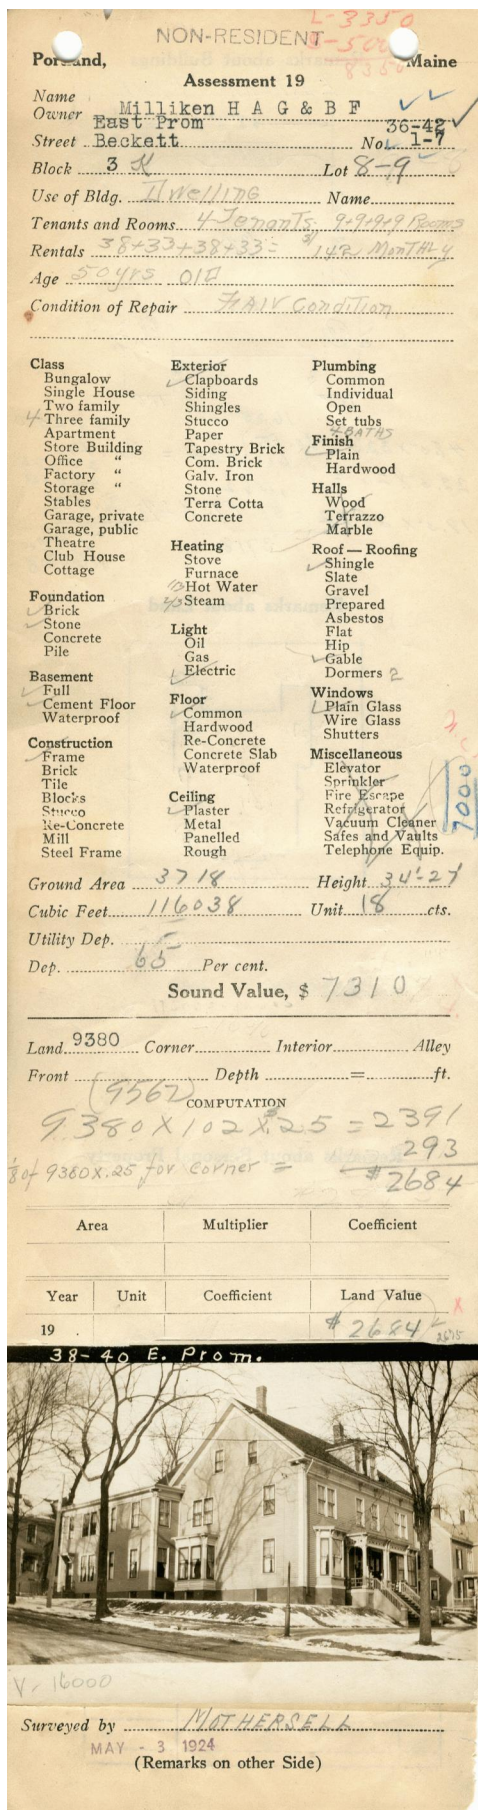 NON-RESIDENT
L-3350
B-500
8350
Portland, Maine
Assessment 19
Name
Owner Milliken H A G & B F
East Prom 36-42
Street Beckett No. 1-7
Block 3 K Lot 8-9
Use of Bldg. Dwelling Name
Tenants and Rooms 4 Tenants. 9+9+9+9 Rooms
Rentals 38+33+38+33= $142 Monthly
Age 50 yrs old
Condition of Repair Fair Condition
Class
Bungalow
Single House
Two family
4 Three family
Apartment
Store Building
Office "
Factory "
Storage "
Stables
Garage, private
Garage, public
Theatre
Club House
Cottage
Foundation
Brick
Stone
Concrete
Pile
Basement
Full
Cement Floor
Waterproof
Construction
Frame
Brick
Tile
Blocks
Stucco
Re-Concrete
Mill
Steel Frame
Exterior
Clapboards
Siding
Shingles
Stucco
Paper
Tapestry Brick
Com. Brick
Galv. Iron
Stone
Terra Cotta
Concrete
Heating
Stove
Furnace
Hot Water
Steam
Light
Oil
Gas
Electric
Floor
Common
Hardwood
Re-Concrete
Concrete Slab
Waterproof
Ceiling
Plaster
Metal
Panelled
Rough
Plumbing
Common
Individual
Open
Set tubs
4 BATHS
Finish
Plain
Hardwood
Halls
Wood
Terrazzo
Marble
Roof — Roofing
Shingle
Slate
Gravel
Prepared
Asbestos
Flat
Hip
Gable
Dormers 2
Windows
Plain Glass
Wire Glass
Shutters
Miscellaneous
Elevator
Sprinkler
Fire Escape
Refrigerator
Vacuum Cleaner
Safes and Vaults
Telephone Equip.
7000
Ground Area 3718 Height 34'-27'
Cubic Feet 116038 Unit 18 cts.
Utility Dep.
Dep. 65 Per cent.
Sound Value, $ 7310
Land 9380 Corner Interior Alley
Front Depth = ft.
(9562)
COMPUTATION
9380 X 102 X 25 = 2391
293
1/8 of 9380 X .25 for Corner = $2684
Area Multiplier Coefficient
Year Unit Coefficient Land Value
19 $ 2684
2675
38-40 E. Prom.
V-16000
Surveyed by MOTHERSELL
MAY - 3 1924
(Remarks on other Side)